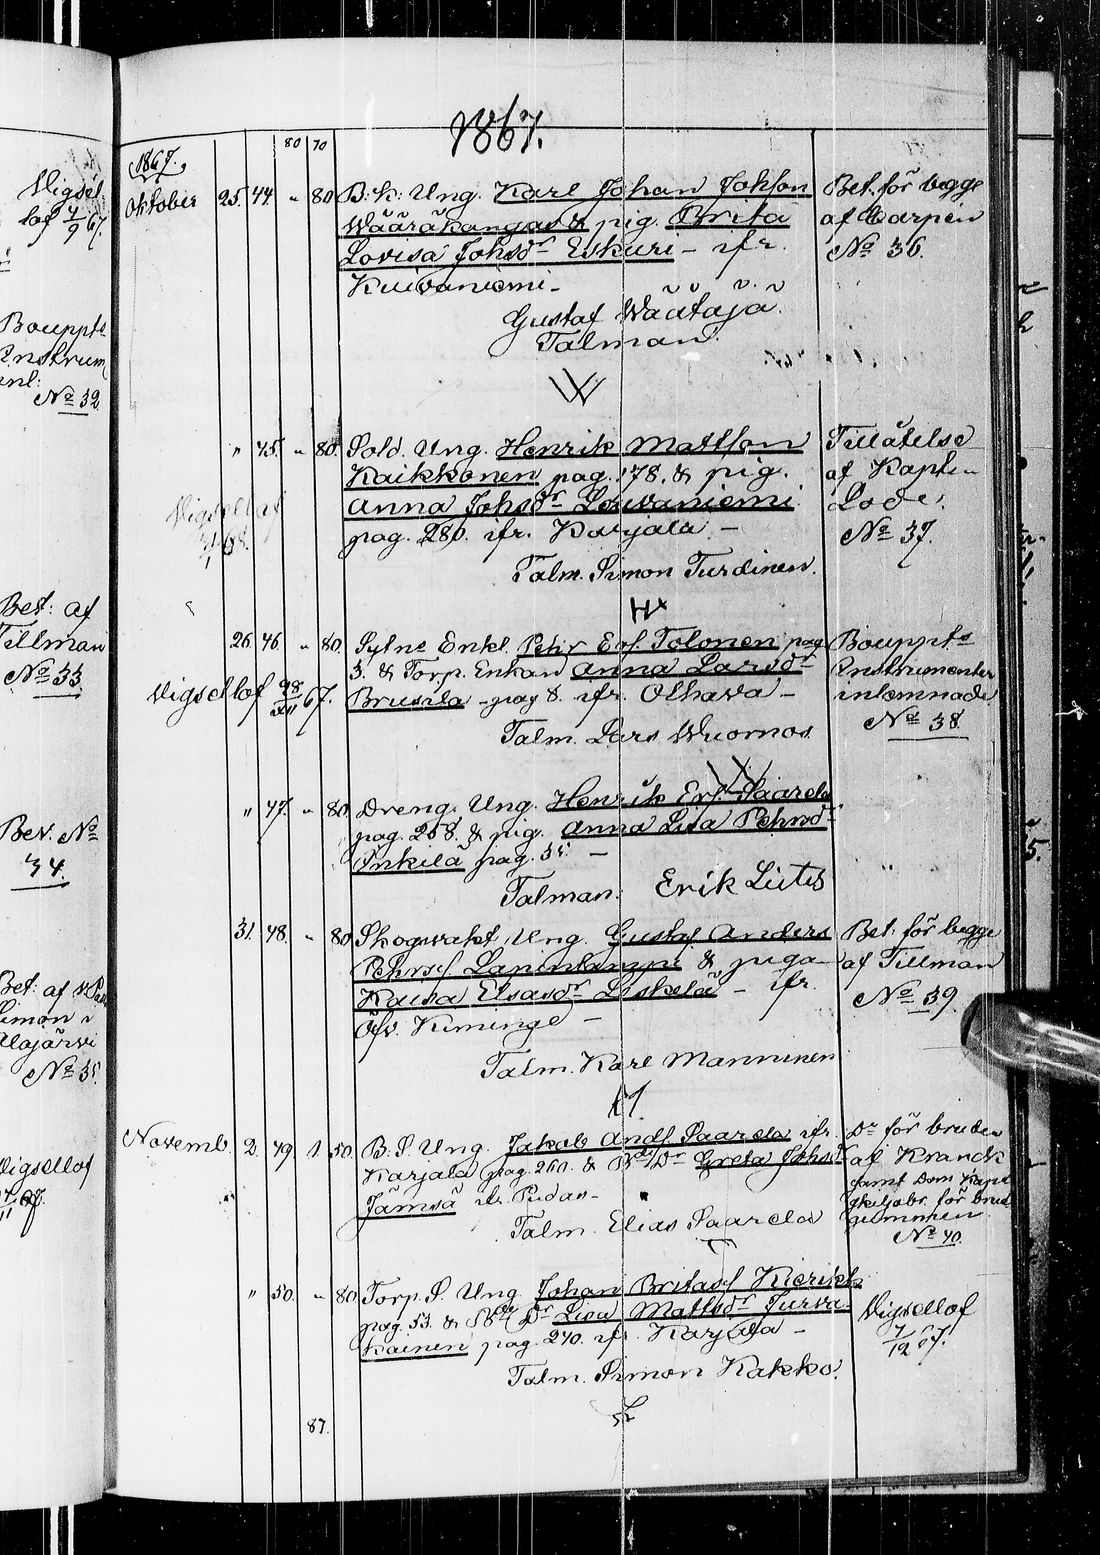 1867.
80 70
1867.
Vigsel
lof 4/9 67.
Bouppts
Instrum
inl:
No 32
Bet: af
Tillman
No 33
Bev. No
34.
Bet: af
Simon
Alajärvi
No 35
Vigsellof
Oktober 25. 44 " 80 B. K: Ung. Karl Johan Johson
Wääräkangas & pig. Brita
Lovisa Johsdr Eskuri - ifr.
Kuivaniemi -
Gustaf Wäätäjä.
Talman.
Bet. för begge
af Carpen
No 36.
" 45. " 80. Sold. Ung. Henrik Mattson
Kaikkonen pag. 178. & pig.
Anna Johsdr Louvaniemi
pag. 280. ifr. Karjala -
Talm. Simon Turdinen.
Tillåtelse
af Kapten
Lode.
No 37.
Vigsellof
26. 46. " 80. Sytne Enkl. Pehr Erf. Tolonen pag
3. & Torp. Enkan Anna Larsdr
Brusila - pag 8. ifr. Olhava -
Talm. Lars Wuornos
Vigsellof 28/XII 67.
Bouppts
Instrumenter
inlemnade
No 38.
" 47. " 80. Dreng. Ung. Henrik Erf. Saarela
pag. 268. & pig. Anna Lisa Pehrsdr
Inkilä pag. 35. -
Talman: Erik Liites
31. 48. " 80 Skogsvakt Ung. Gustaf Anders
Pehrsf. Lapinlamppi & piga
Kaisa Elsasdr Leskelä - ifr.
Öfv. Kiminge -
Talm. Karl Manninen
Bet. för begge
af Tillman
No 39.
Novemb. 2. 49 1. 50. B. S. Ung. Jakob Andf. Saarela ifr.
Karjala pag. 260. & Bdr Dr Greta Johsdr
Jämsä ifr. Pudas -
Talm. Elias Saarela
Do för bruden
af Krank
samt Dom Kapi
för brud
gummen
No 40.
" 50. " 80. Torp. S. Ung. Johan Britasf Kierikk
pag. 53. & Dr Lisa Mattsdr Turva
kainen pag. 270. ifr. Karjala -
Talm. Simon Kakko.
Vigsellof
7/12 67.
87.